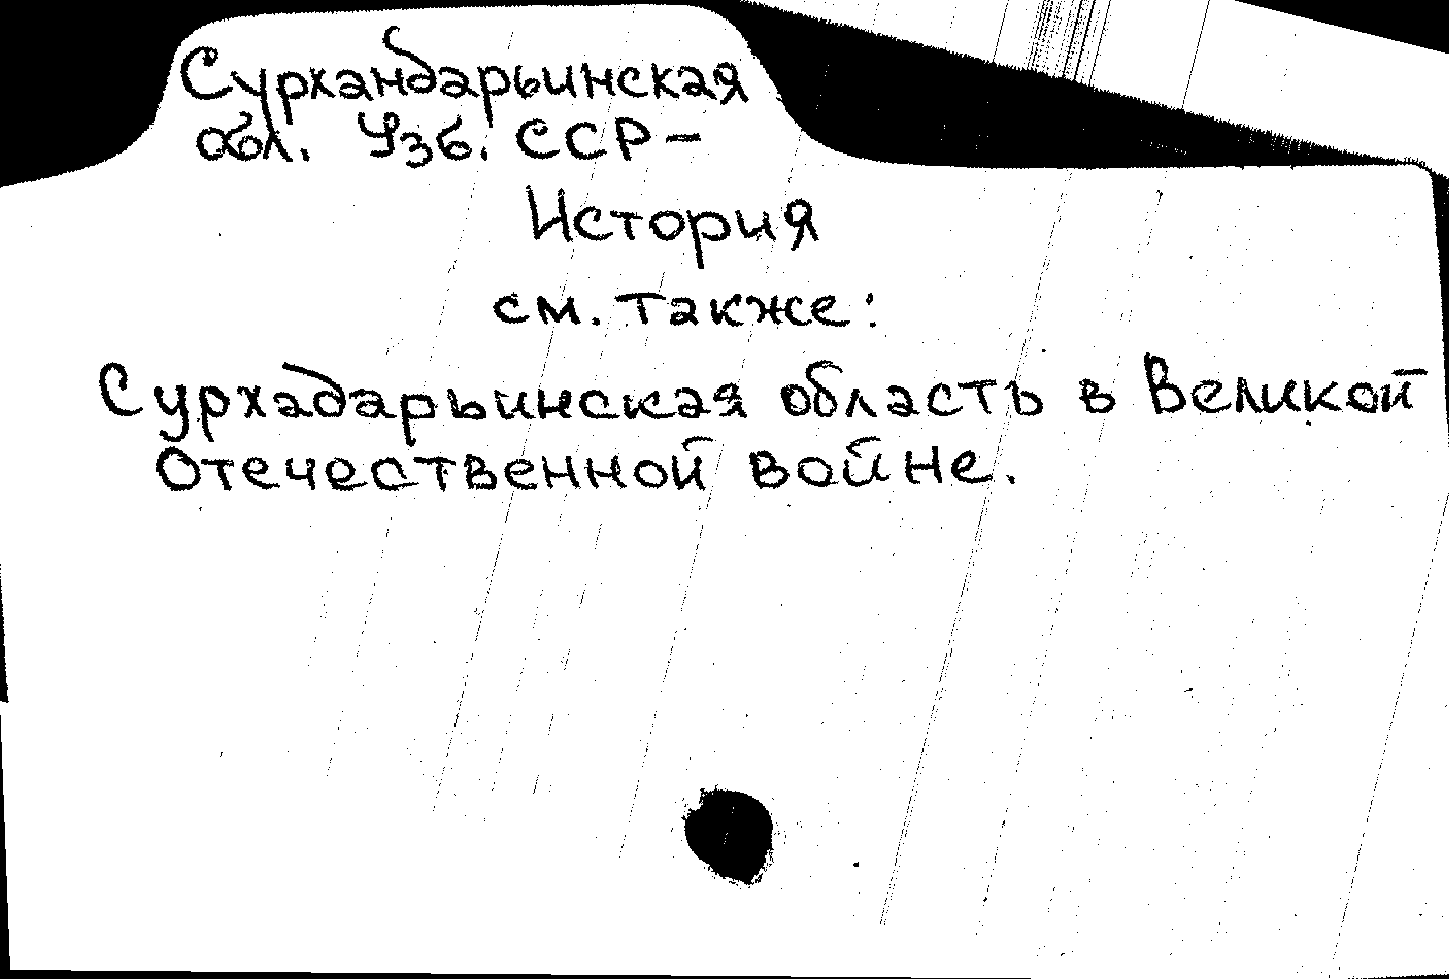 Сурхандарьинская
обл. Узб. ССР –
История
см. также:
Сурхадарьинская область в Великой
Отечественной войне.